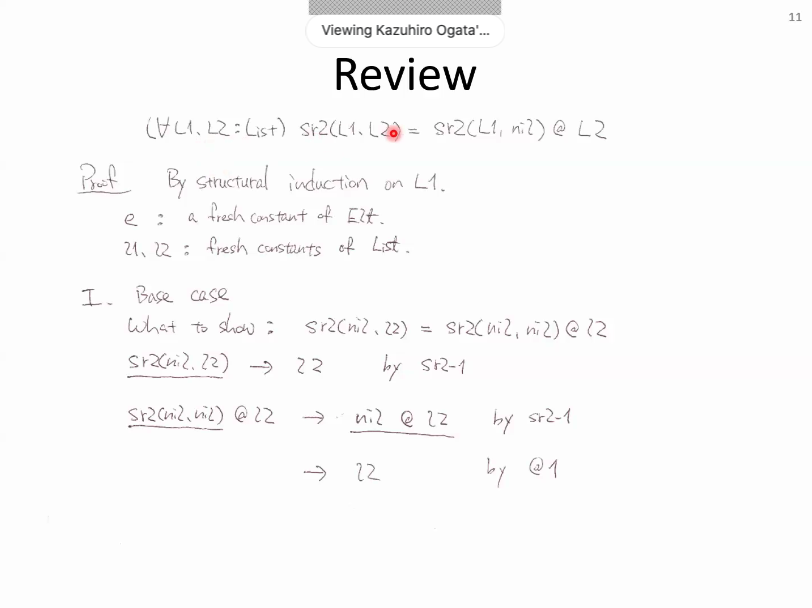 11
Viewing Kazuhiro Ogata'...
Review
(∀L1, L2 : List) sr2(L1, L2) = sr2(L1, nil) @ L2
Proof By structural induction on L1.
e : a fresh constant of Elt.
l1, l2 : fresh constants of List.
I. Base case
What to show : sr2(nil, l2) = sr2(nil, nil) @ l2
sr2(nil, l2) → l2 by sr2-1
sr2(nil, nil) @ l2 → nil @ l2 by sr2-1
→ l2 by @1